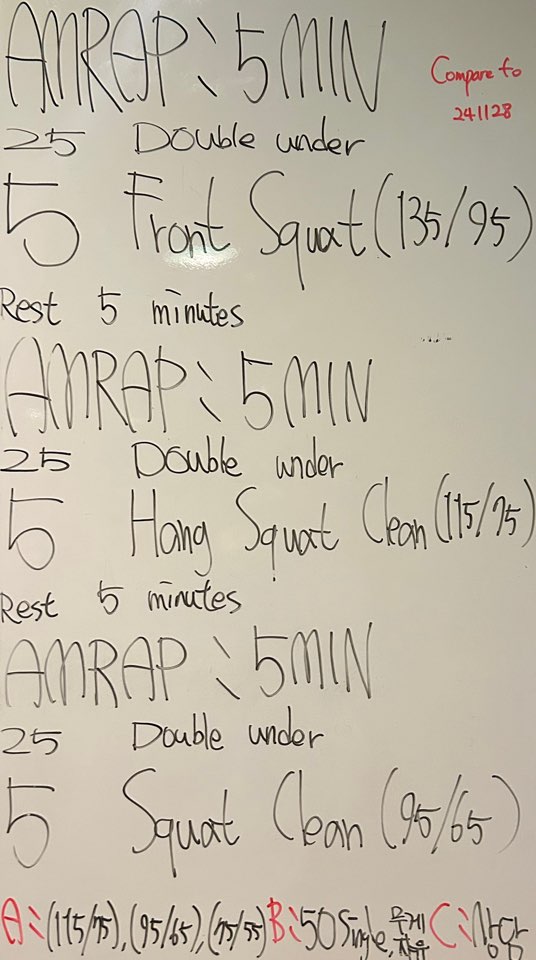 AMRAP: 5 MIN
Compare to
241128
25 Double under
5 Front Squat (135/95)
Rest 5 minutes
AMRAP: 5 MIN
25 Double under
5 Hang Squat Clean (115/75)
Rest 5 minutes
AMRAP: 5 MIN
25 Double under
5 Squat Clean (95/65)
A: (115/75), (95/65), (75/55) B: 50 Single, 무게 자유 C: 상담